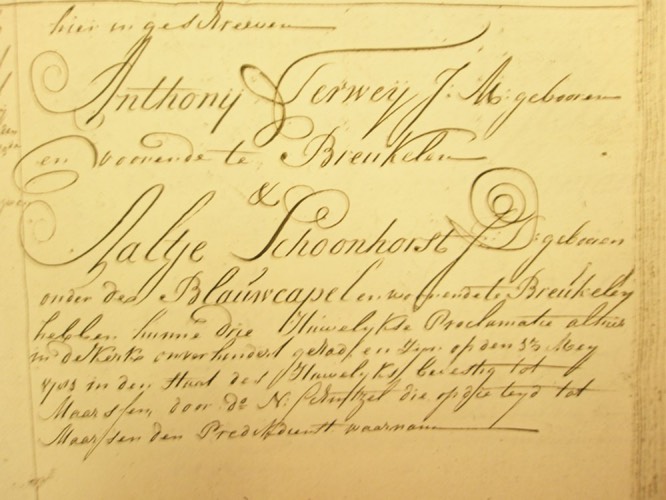 hier in geschreeven
Anthony Terweij J: M: gebooren
en woonende te Breukelen
&
Aaltje Schoonhorst J: D: gebooren
onder de Blauwcapel en woonende te Breukelen
hebben hunne drie Huwelykse Proclamatie alhier
in de Kerk onverhindert gehad, en zyn op den Mey
in den Staat des Huwelyks bevestig tot
Maarssen, door Ds. N: die op die tyd tot
Maarssen den Predikdienst waarnam